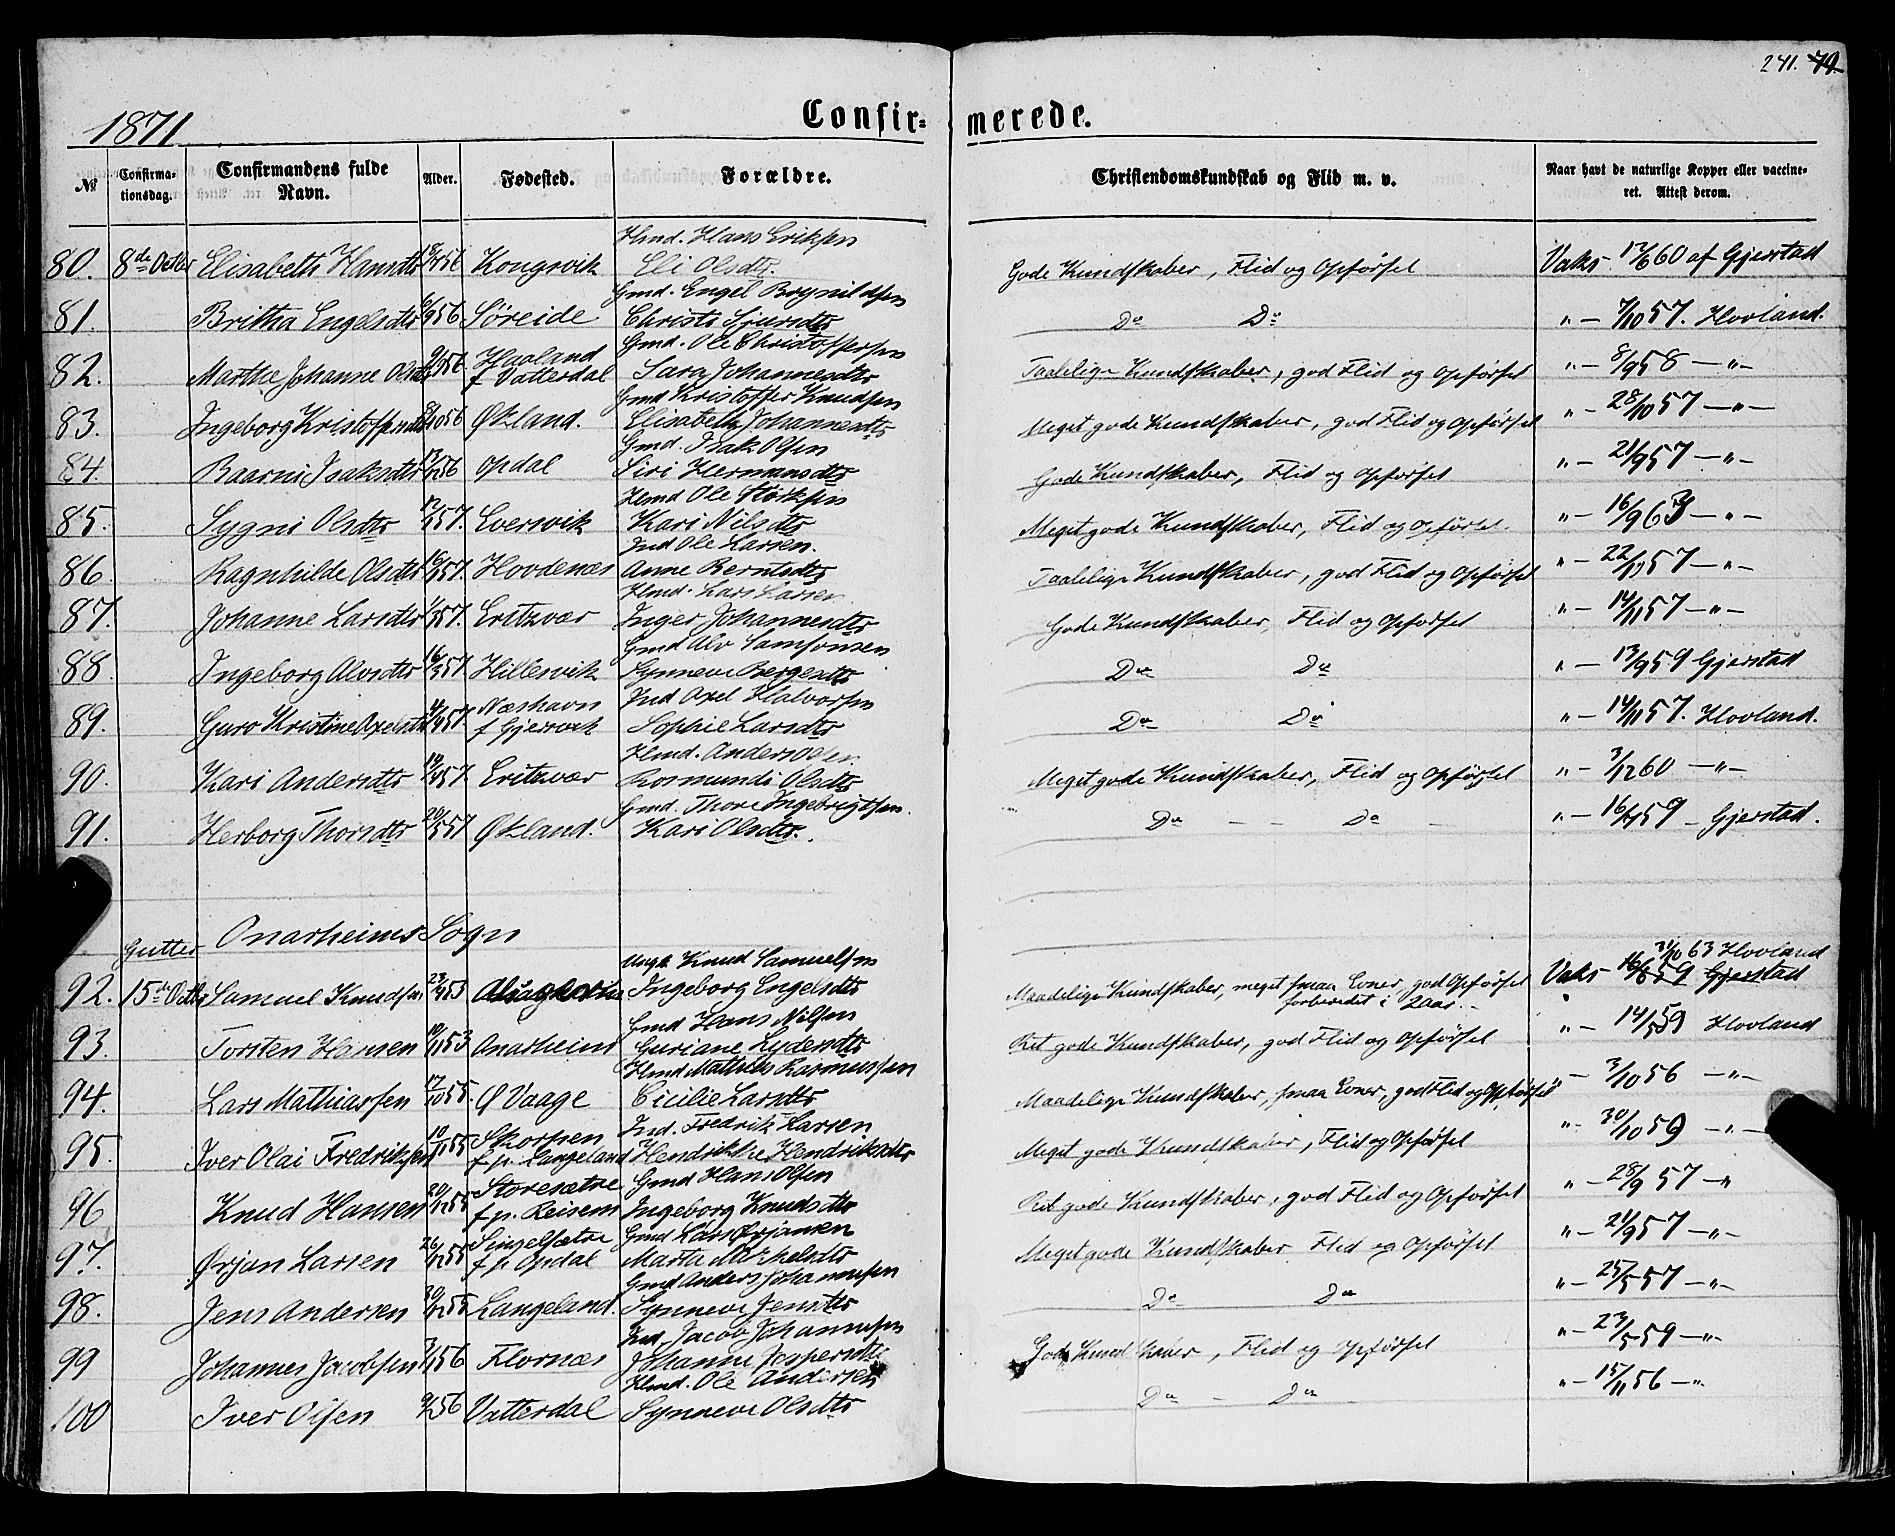 241. 79.
1871
Confir- merede.
№ Confirma-tionsdag. Confirmandens fulde Navn. Alder. Fødested. Forældre. Christendomskundskab og Flid m. v. Naar havt de naturlige Kopper eller vaccine-ret. Attest derom.
Hmd. Hans Eriksen
80. 8de Octbr Elisabeth Hansdtr 56 Kongsvik Eli Olsdtr. Gode Kundskaber, Flid og Opførsel Vaks 17/6 60 af Gjerstad
Gmd. Engel Brynildsen
81. Britha Engelsdtr 56 Søreide Christi Sjursdtr Do Do " — 7/10 57. Hovland.
Gmd. Ole Christoffersen
82. Marthe Johanne Olsdtr 56 Hualand f Vatterdal Sara Johannesdtr Taalelige Kundskaber, god Flid og Opførsel " — 8/9 58 — " —
Gmd Kristoffer Knudsen
83. Ingeborg Kristoffersdtr 56 Økland. Elisabeth Johannesdtr Meget gode Kundskaber, god Flid og Opførsel " — 28/10 57 — " —
Gmd. Isak Olsen
84. Baarni Isaksdtr 56 Opdal Siri Hermansdtr Gode Kundskaber, Flid og Opførsel " — 21/9 57 — " —
Hmd Ole Størksen
85. Sygni Olsdtr 57. Eversvik Kari Nilsdtr Meget gode Kundskaber, Flid og Opførsel. " — 16/9 63 — " —
Ind Ole Larsen.
86. Ragnhilde Olsdtr 57. Hovdenæs Anne Berntsdtr Taalelige Kundskaber, god Flid og Opførsel " — 22/10 57 — " —
Hmd. Lars Larsen
87. Johanne Larsdtr 57. Eritzvær Inger Johannesdtr Gode Kundskaber, Flid og Opførsel " — 14/11 57 — " —
Gmd Alv Samsonsen
88. Ingeborg Alvsdtr 16/3 57 Hillersvik Synneve Børgesdtr Do Do " — 13/9 59 Gjerstad
Ind Axel Halvorsen
89. Guro Kristine Axelsdtr 57. Næshavn f Gjersvik Sophie Larsdtr Do Do " — 14/11 57. Hovland.
Hmd. Anders Olsen
90. Kari Andersdtr 57. Eritzvær Rosmundi Olsdtr Meget gode Kundskaber, Flid og Opførsel " — 3/12 60 — " —
Gmd. Thore Ingebrigtsen.
91. Herborg Thorsdtr 20/5 57 Økland. Kari Olsdtr. Do — — Do — " — 59 — Gjerstad.
Onarheims Sogn
Gutter
Ungk Knud Samuelsen 31/10 63 Hovland
92. 15de Octbr Samuel Knudsen 23/4 53 Alsagkerhe Ingeborg Engelsdtr Maadelige Kundskaber, meget smaa Evner, god Opførsel Vaks 16/8 59 Gjerstad
forberedet i 2 aar.
Gmd Hans Nilsen
93. Torsten Hansen 53 Onarheim Guriane Lydersdtr Ret gode Kundskaber, god Flid og Opførsel " — 14/5 59 Hovland
Hmd Mathias Rasmussen
94. Lars Mathiassen 17/10 55. Ø Vaage Cicilie Larsdtr Maadelige Kundskaber, smaa Evner, god Flid og Opførsel " — 3/10 56 — " —
Ind. Fredrik Larsen
95. Iver Olai Fredriksen 55 Skorpen f. p. Langeland Hendrikke Hendriksdtr Meget gode Kundskaber, Flid og Opførsel " — 30/10 59 — " —
Gmd Hans Olsen
96 Knud Hansen 20/12 55 Storesætre f. p. Reisem Ingeborg Knudsdtr Ret gode Kundskaber, god Flid og Opførsel " — 28/9 57 — "
Gmd Lars Ørjansen
97. Ørjan Larsen 26/12 55 Singelsætre f p Opdal Marta Michelsdtr Meget gode Kundskaber Flid og Opførsel " — 21/9 57 — " —
Gmd Anders Johannesen
98. Jens Andersen 30/12 55 Langeland. Synneve Jensdtr Do Do " — 25/5 57 — " —
Ind. Jacob Johannesen
99 Johannes Jacobsen 56 Flornæs Johanne Jespersdtr Gode Kundskaber, Flid og Opførsel " — 23/5 59 — " —
Hmd. Ole Andersen
100 Iver Olsen 56 Vatterdal Synneve Olsdtr Do — Do " — 15/11 56 — "